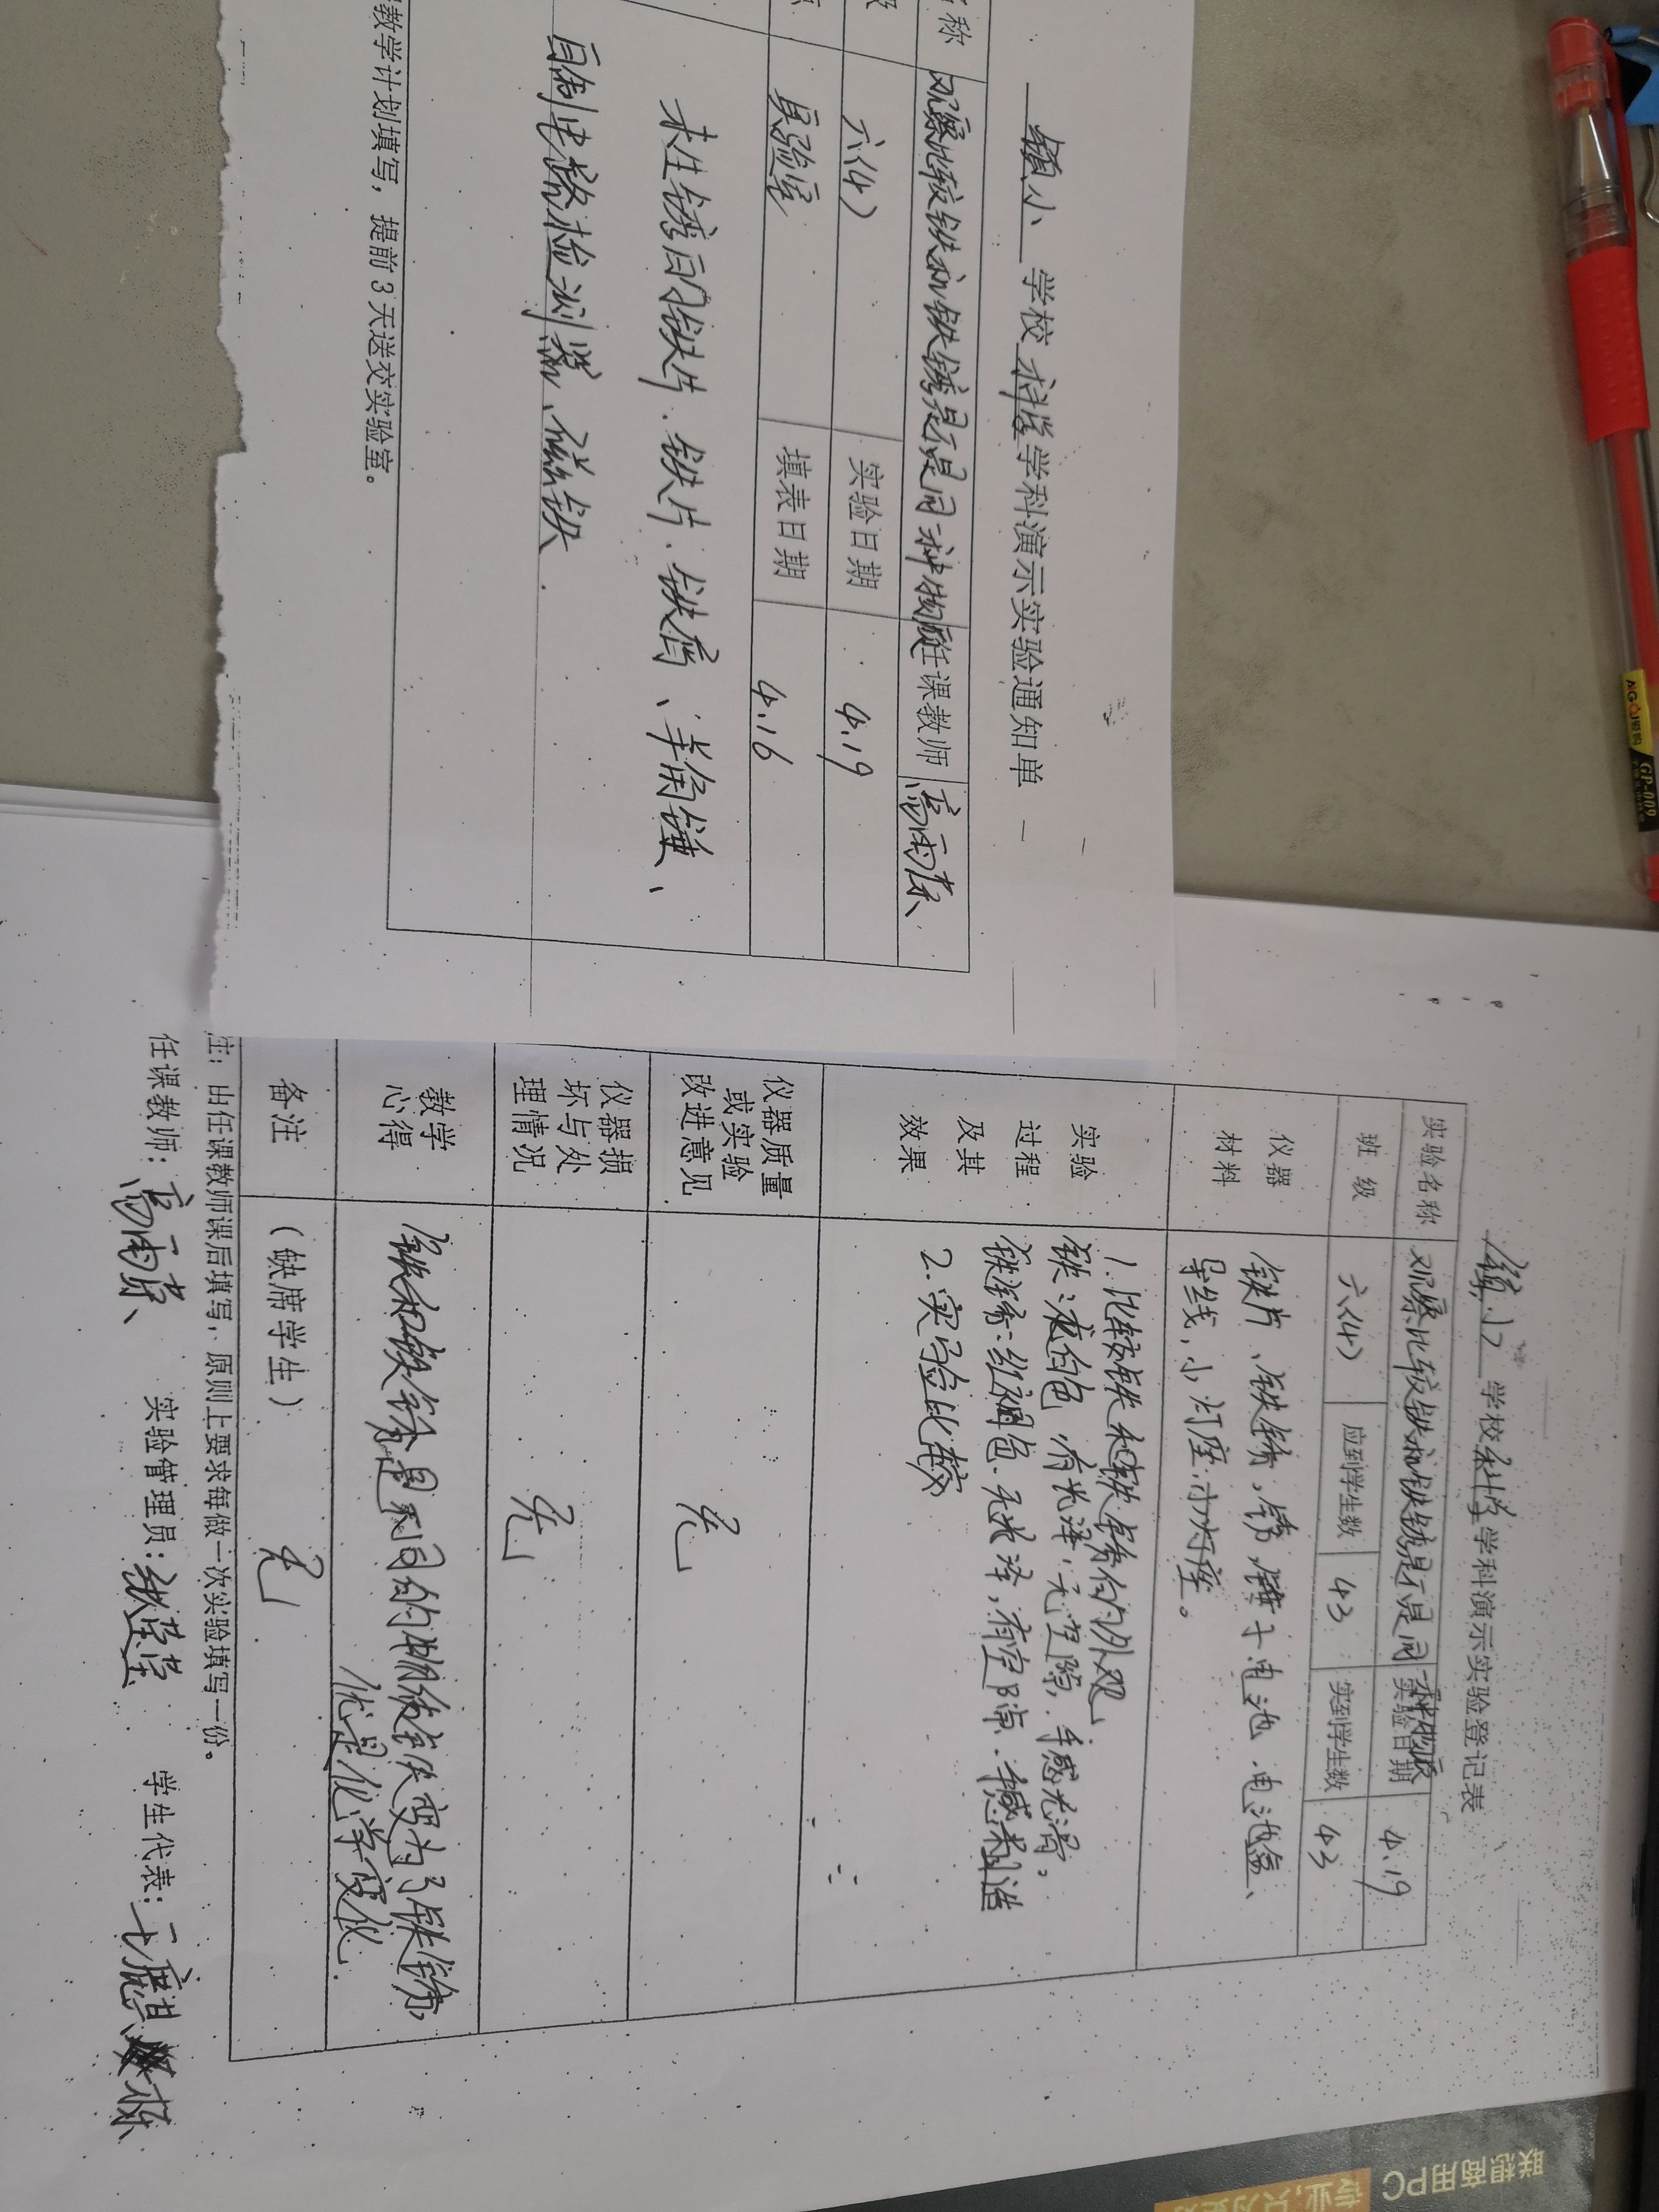 镇小 学校 科学 学科演示实验通知单
称 观察比较铁和铁锈是不是同一种物质 任课教师 高雨荞
级 六(4) 实验日期 4.19
实验室 填表日期 4.16
未生锈的铁片、铁片、铁屑、羊角锤、
自制电路检测器、磁铁
教学计划填写，提前3天送交实验室。
镇小 学校 科学 学科演示实验登记表
实验名称 观察比较铁和铁锈是不是同一种物质 实验日期 4.19
班 级 六(4) 应到学生数 43 实到学生数 43
仪器材料 铁片、铁锈、锈、锤子、电池、电池盒、
导线，小灯座、小灯座。
实验过程及其效果 1.比较铁和铁锈的外观
铁：银白色，有光泽，无空隙，手感光滑，
铁锈：红褐色、无光泽，有空隙、手感粗糙
2.实验比较
仪器质量或实验改进意见 无
仪器损坏与处理情况 无
教学心得 铁和铁锈是不同的物质铁变为了铁锈
就是化学变化.
备注 (缺席学生) 无
注：由任课教师课后填写，原则上要求每做一次实验填写一份。
任课教师：高雨荞 实验管理员：张莹莹 学生代表：
AG
GP-009
联想商用PC